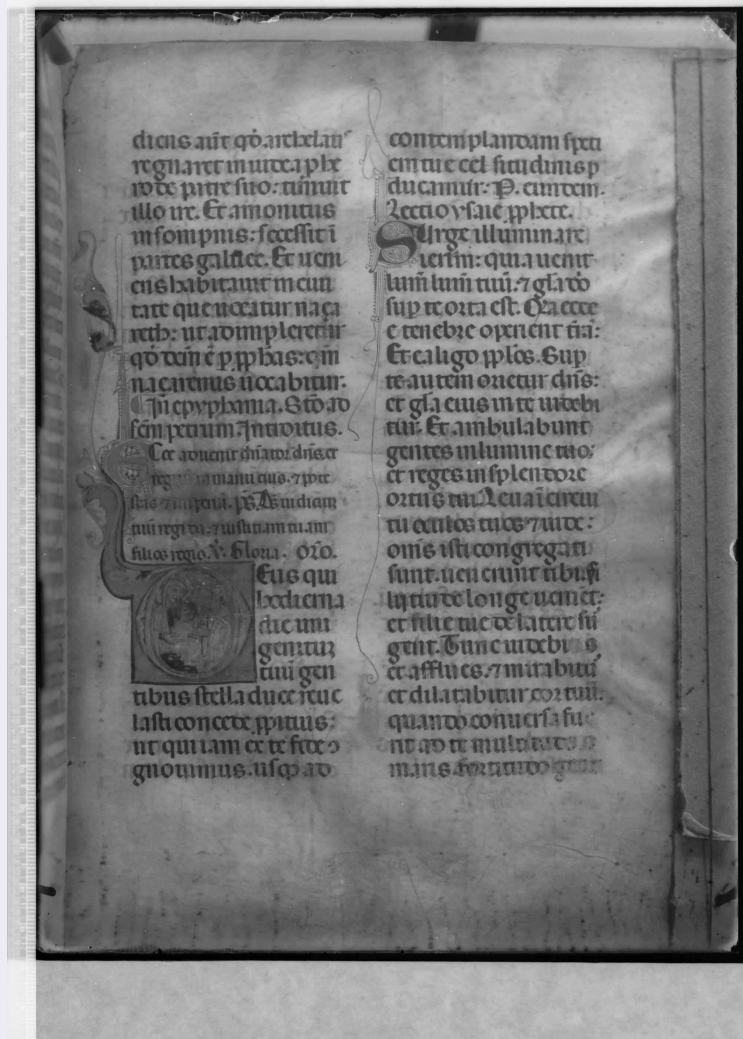 diens aūt qđ archelauˢ
regnaret in iudea ꝓ he
rode patre suo: timuit
illo ire. Et amonitus
in sompnis: secessit ī
partes galilee. Et ueni
ens habitauit in ciui
tate que uocatur naça
reth: ut adimpleretur
qđ dcm̄ ē ꝑ ꝓphas: qm̄
naçarenus uocabitur.
In epyphania. Stō ad
scm̄ petrum. Introitus.
Ecce aduenit dn̄ator dn̄s. et
regnum in manu eius. ⁊ pote
stas ⁊ imperiū. ps̄. Ds̄ iudiciū
tuū regi da: ⁊ iustitiam tuam
filio regis. ℣. Gloria. Orō.
Deus qui
hodierna
die uni
genitum
tuū gen
tibus stella duce reue
lasti concede ꝓpitius:
ut qui iam ex te fide co
gnouimus. usqꝫ ad
contemplandam speci
em tue celsitudinis ꝑ
ducamur: P. eundem.
Lectio ysaie ꝓphete.
Surge illuminare
ierlm̄: quia uenit
lum̄ tuū: ⁊ gl̄a dō
suꝑ te orta est. Qa ecce
tenebre operient t̄rā:
Et caligo ꝓplōs. Suꝑ
te autem orietur dn̄s:
et gl̄a eius in te uidebi
tur. Et ambulabunt
gentes in lumine tuo:
et reges in splendore
ortus tui. Leua ī circui
tu oculos tuos ⁊ uide:
om̄s isti congregati
sunt. uenerunt tibi. fi
lii tui de longe uenient:
et filie tue de latere sur
gent. Tunc uidebis
et afflues. ⁊ mirabitur
et dilatabitur cor tuū:
quando conuersa fue
rit ad te multitudo
maris. fortitudo gent